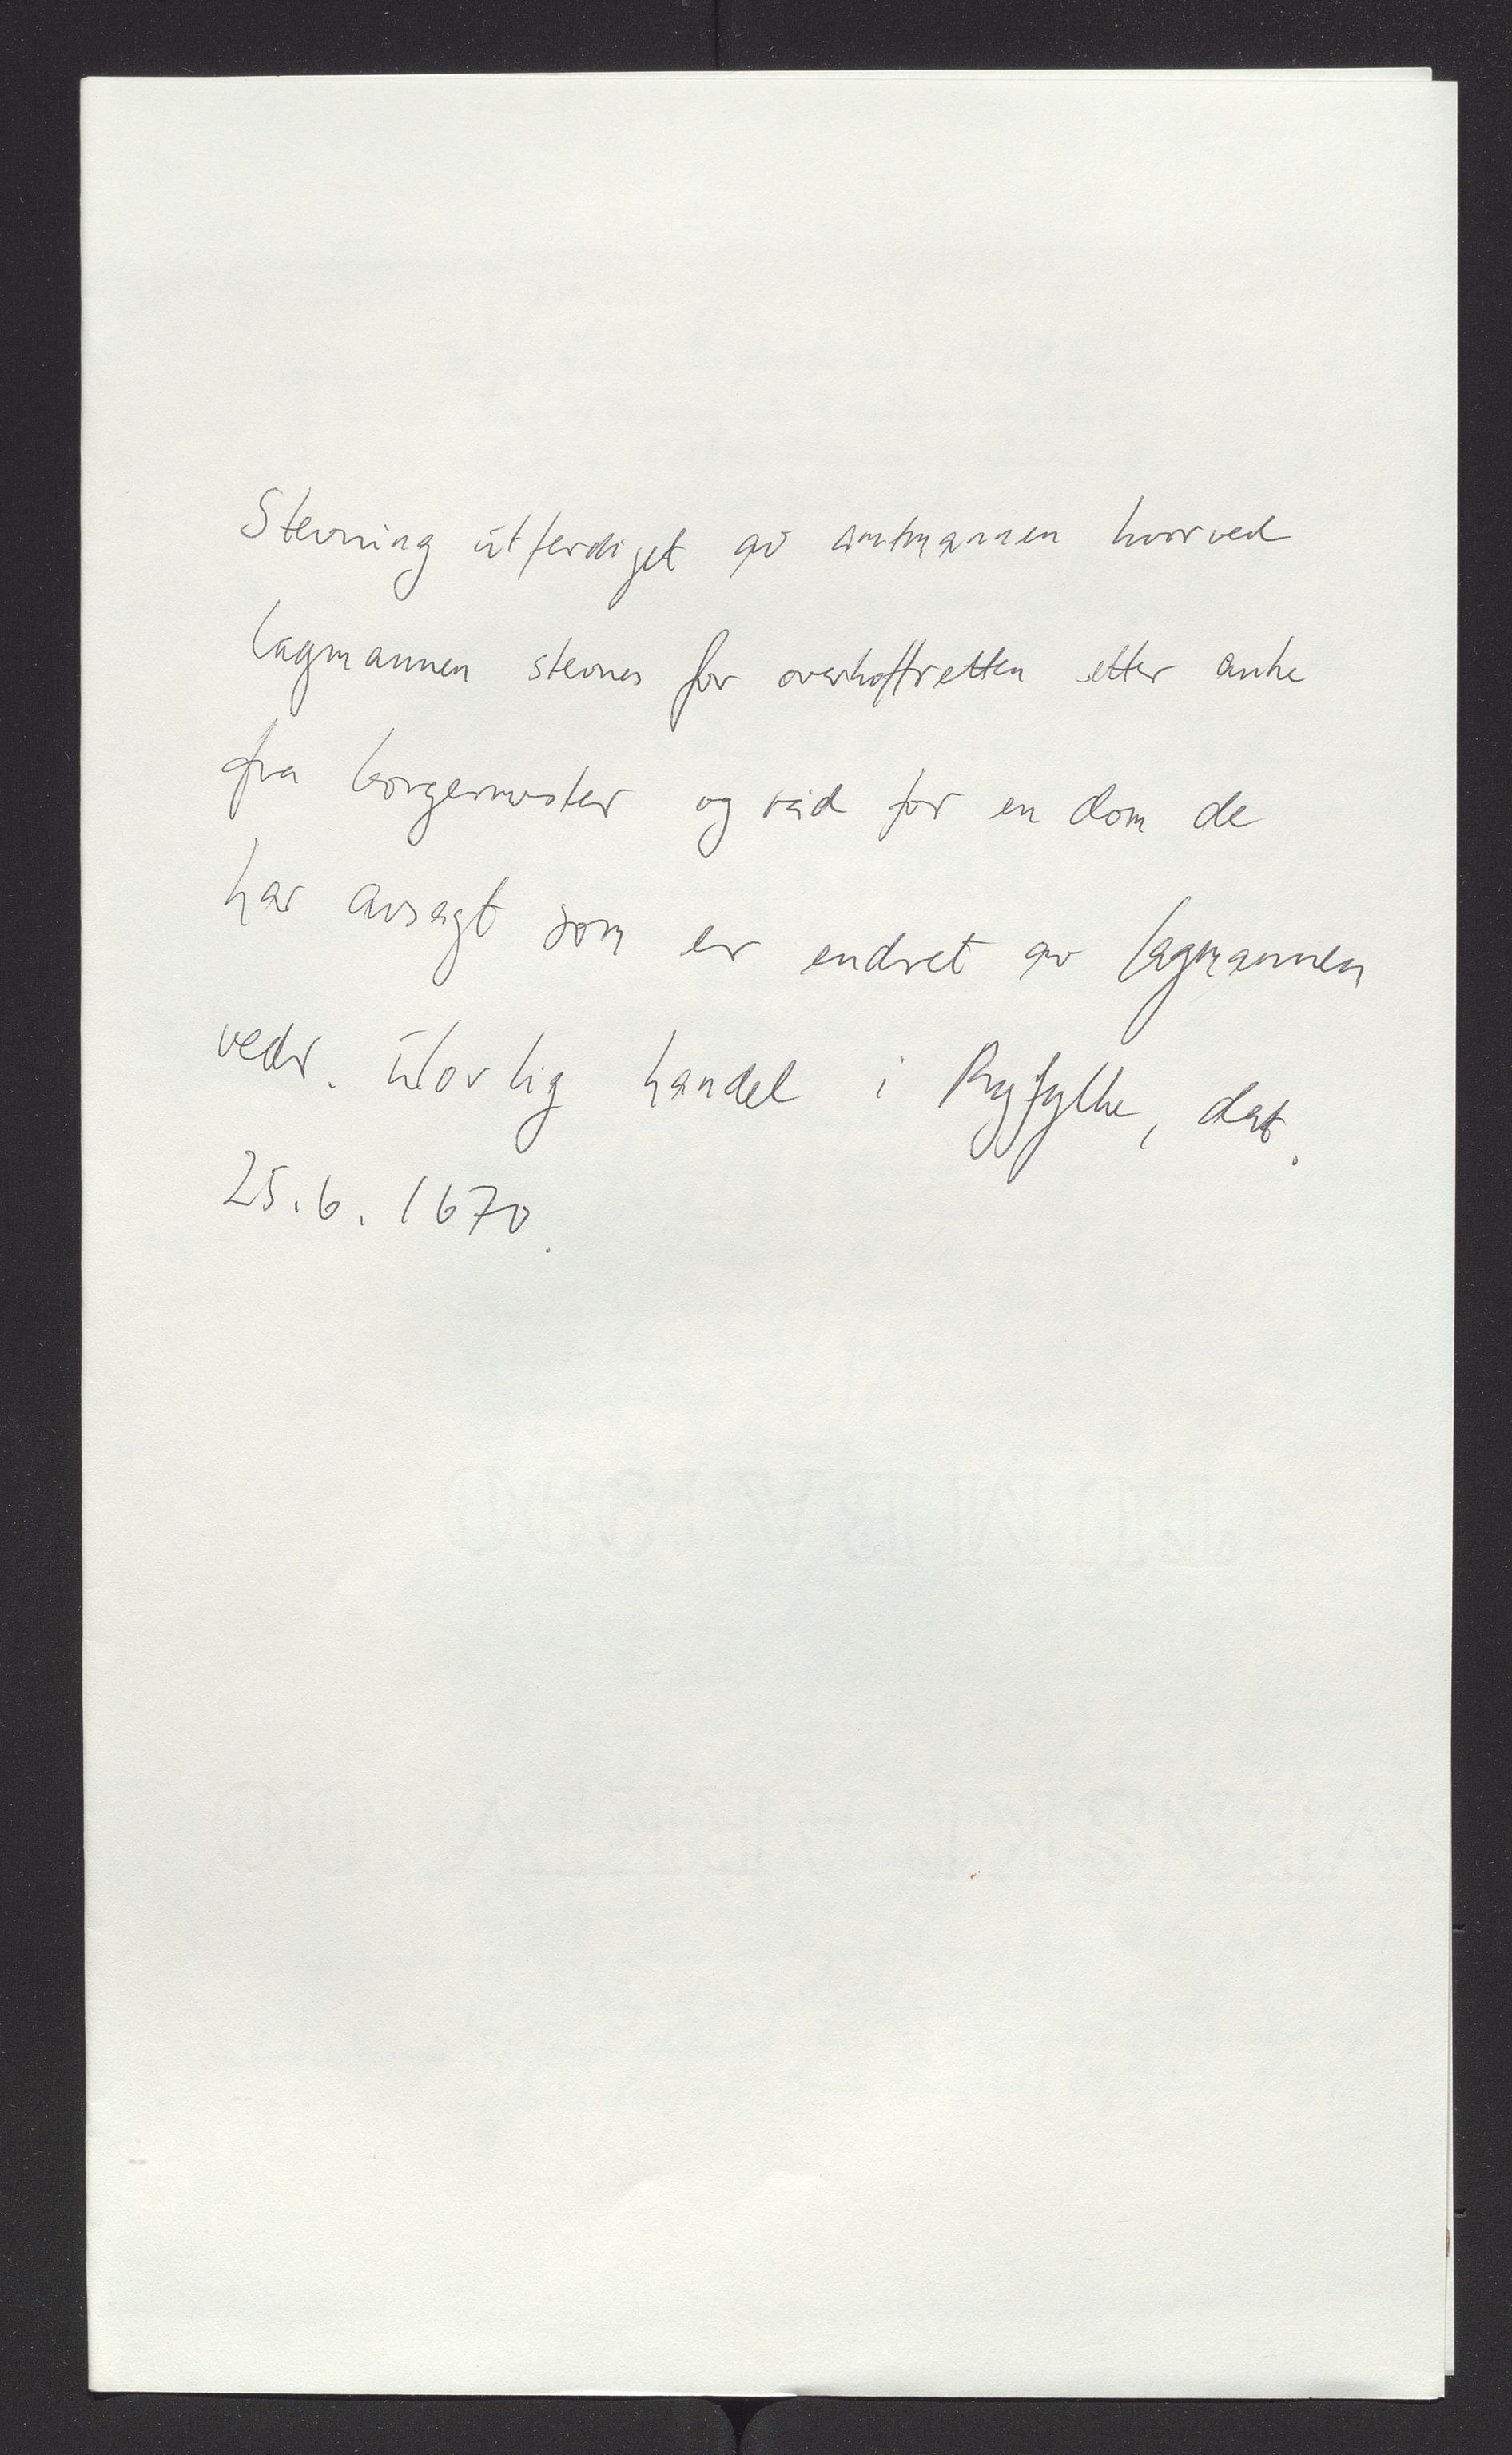 Stevning utferdiget av amtmannen hvorved
lagmannen stevnes for overhoffretten etter anke
fra borgermester og råd for en dom de
har avsagt som er endret av lagmannen
vedr. ulovlig handel i Ryfylke, dat.
25.6.1670.